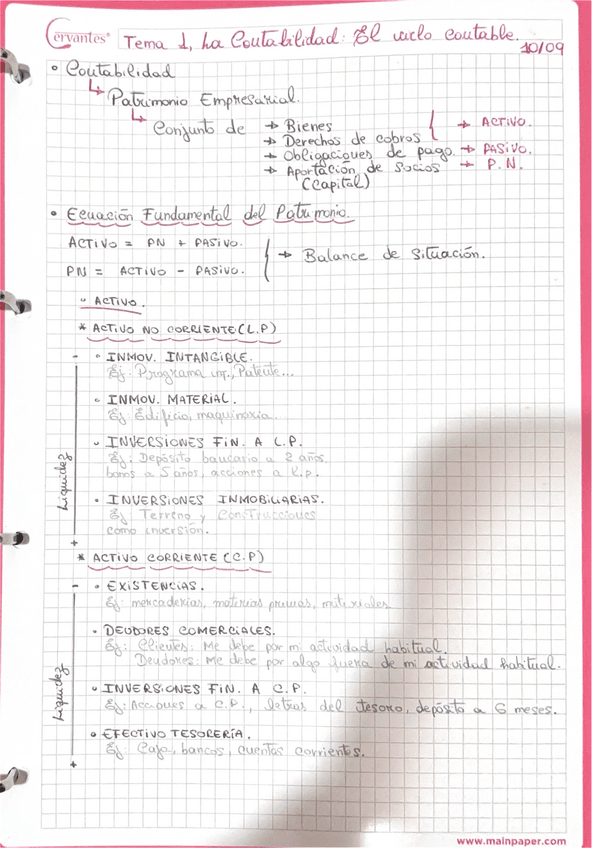 Cervantes® Tema 1, La Contabilidad: El ciclo contable.
10/09
• Contabilidad
↳ Patrimonio Empresarial.
↳ Conjunto de → Bienes
→ Derechos de cobros → ACTIVO.
→ Obligaciones de pago. → PASIVO.
→ Aportación de socios → P.N.
(Capital)
• Ecuación Fundamental del Patrimonio.
ACTIVO = PN + PASIVO.
→ Balance de situación.
PN = ACTIVO - PASIVO.
• ACTIVO.
* ACTIVO NO CORRIENTE (L.P)
- • INMOV. INTANGIBLE.
Ej: Programa inf., Patente...
• INMOV. MATERIAL.
Ej: Edificio, maquinaria.
• INVERSIONES FIN. A L.P.
Ej: Depósito bancario a 2 años.
bonos a 5 años, acciones a l.p.
Liquidez
• INVERSIONES INMOBILIARIAS.
Ej Terreno y Construcciones
como inversión.
+
* ACTIVO CORRIENTE (C.P)
- • EXISTENCIAS.
Ej: mercaderías, materias primas,
• DEUDORES COMERCIALES.
Ej: Clientes: Me debe por mi actividad habitual.
Deudores: Me debe por algo fuera de mi actividad habitual.
Liquidez
• INVERSIONES FIN. A C.P.
Ej: Acciones a C.P., letras del tesoro, depósito a 6 meses.
• EFECTIVO TESORERÍA.
Ej: Caja, bancos, cuentas corrientes.
+
www.mainpaper.com